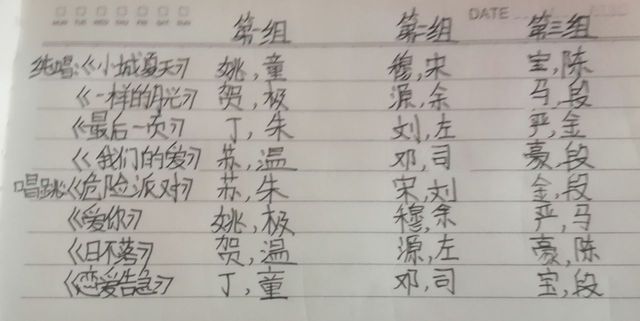 DATE
第一组 第二组 第三组
纯唱:《小城夏天》 姚,童 穆,宋 宝,陈
《一样的月光》 贺,极 源,余 马,段
《最后一页》 丁,朱 刘,左 严,金
《我们的爱》 苏,温 邓,司 豪,段
唱跳《危险派对》 苏,朱 宋,刘 金,段
《爱你》 姚,极 穆,余 严,马
《日不落》 贺,温 源,左 豪,陈
《恋爱告急》 丁,童 邓,司 宝,段